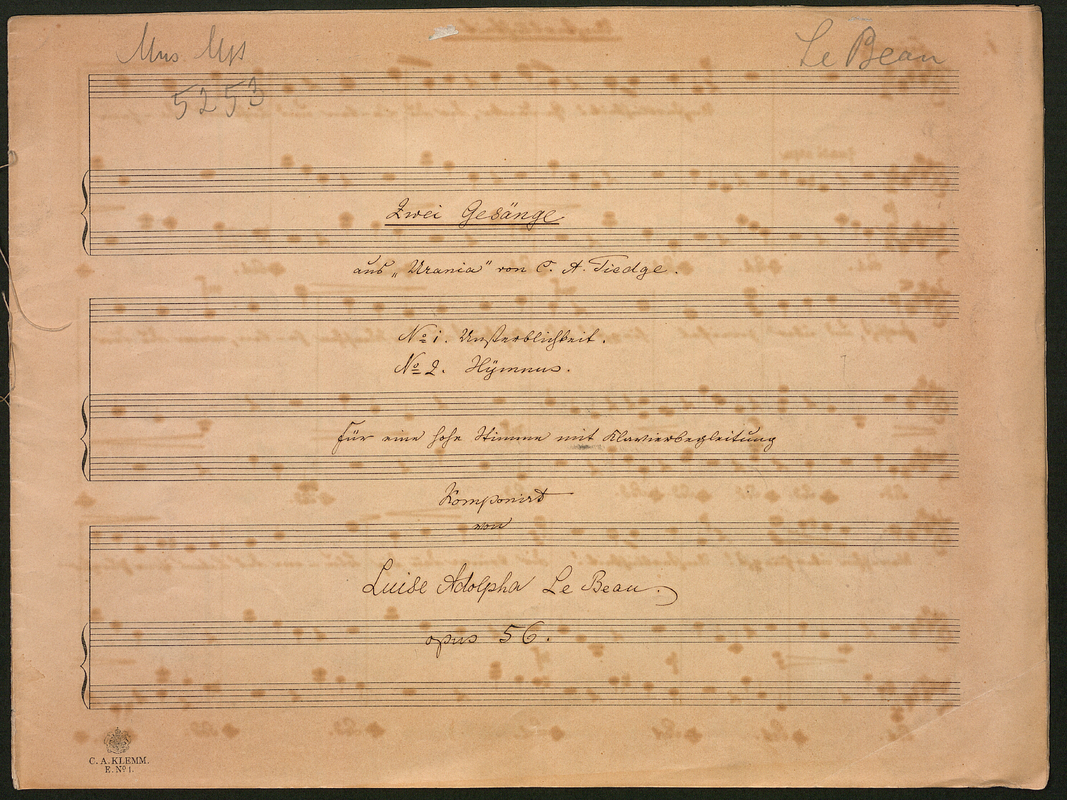 Mus Ms
5253
Le Beau
Zwei Gesänge
aus „Urania" von C. A. Tiedge.
No 1. Unsterblichkeit.
No 2. Hÿmnus.
für eine hohe Stimme mit Klavierbegleitung
Komponirt
von
Luise Adolpha Le Beau.
opus 56.
C. A. KLEMM.
E. No 1.